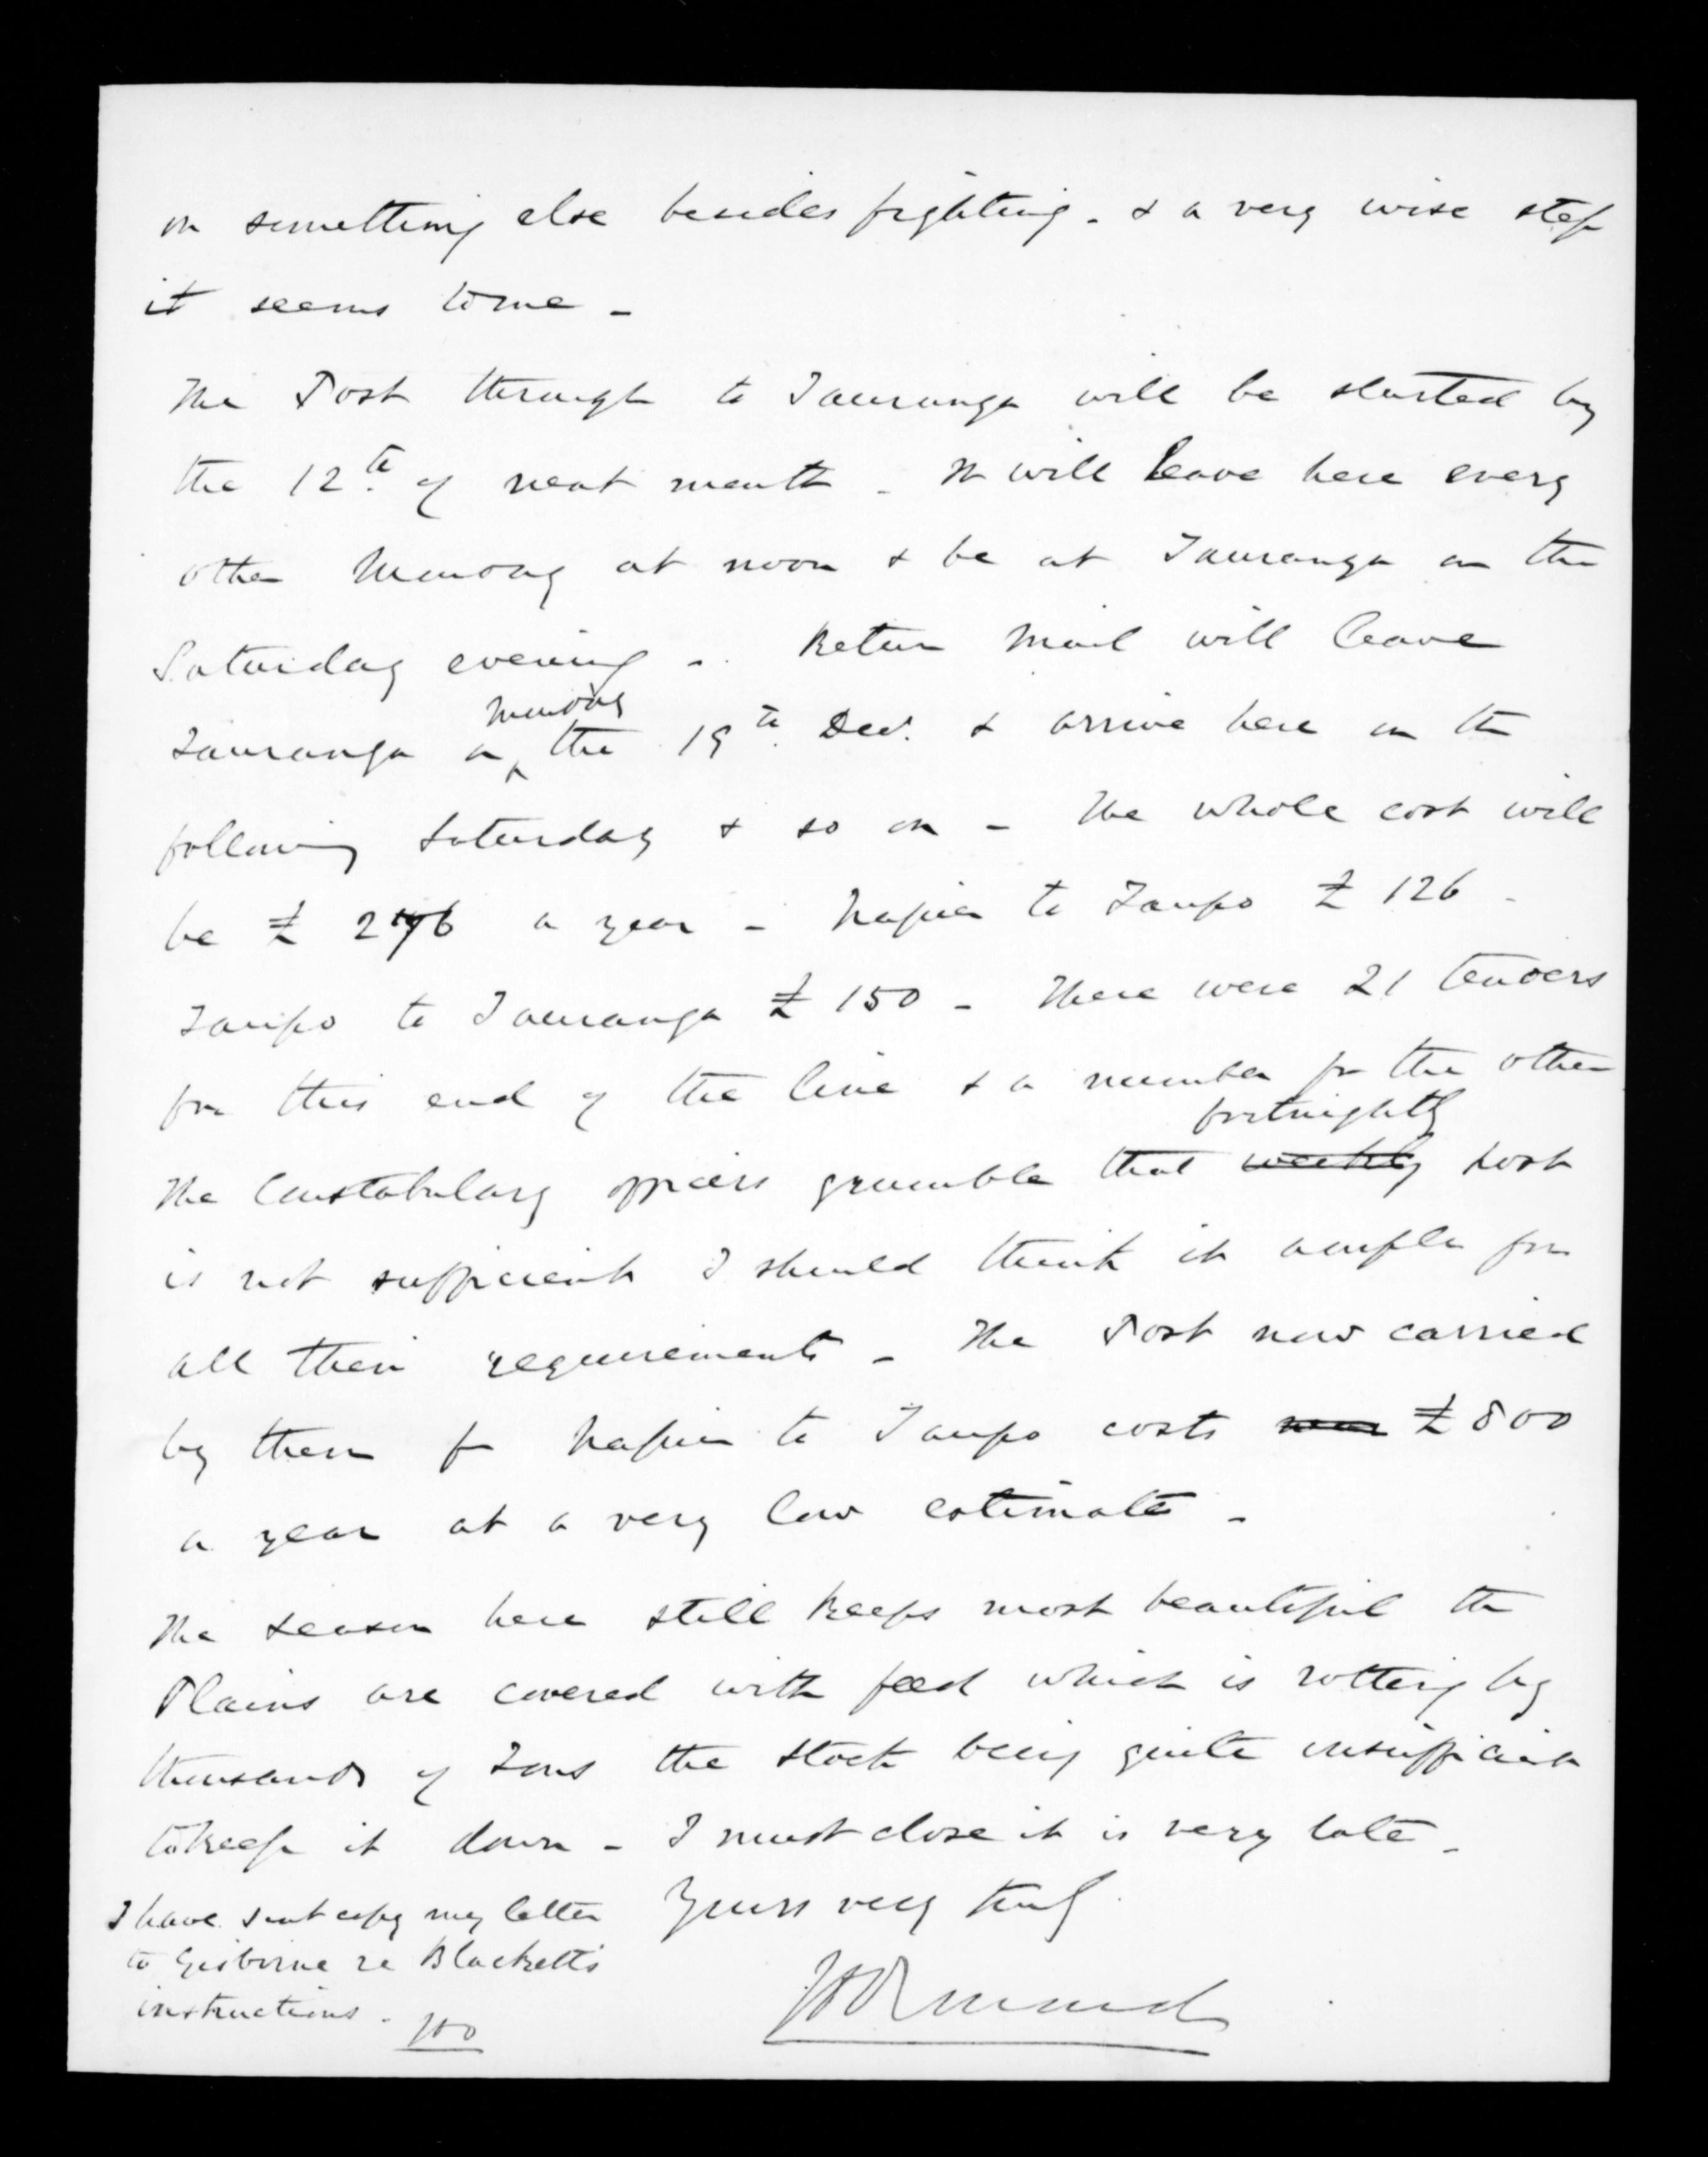 on something else besides fighting - & a very wise step
it seems to me -
The Post through to Tauranga will be started by
the 12th of next month - It will leave here every
other Monday at noon & be at Tauranga on the
Saturday evening - Return Mail will leave
Monday
Tauranga on the 19th Decr. & arrive here on the
following Saturday & so on - The whole cost will
be £ 276 a year - Napier to Taupo £ 126 -
Taupo to Tauranga £ 150 - There were 21 tenders
for this end of the line & a number for the other
fortnightly
The Constabulary officers grumble that weekly post
is not sufficient I should think it ample for
all their requirements - The Post now carried
by them fr Napier to Taupo costs £800
a year at a very low estimate -
The season here still keeps most beautiful the
Plains are covered with feed which is rotting by
thousands of Tons the stock being quite insufficient
to keep it down - I must close it is very late -
Yours very truly
JD Ormond
I have sent copy my letter
to Gisborne re Blackett's
instructions - JDO